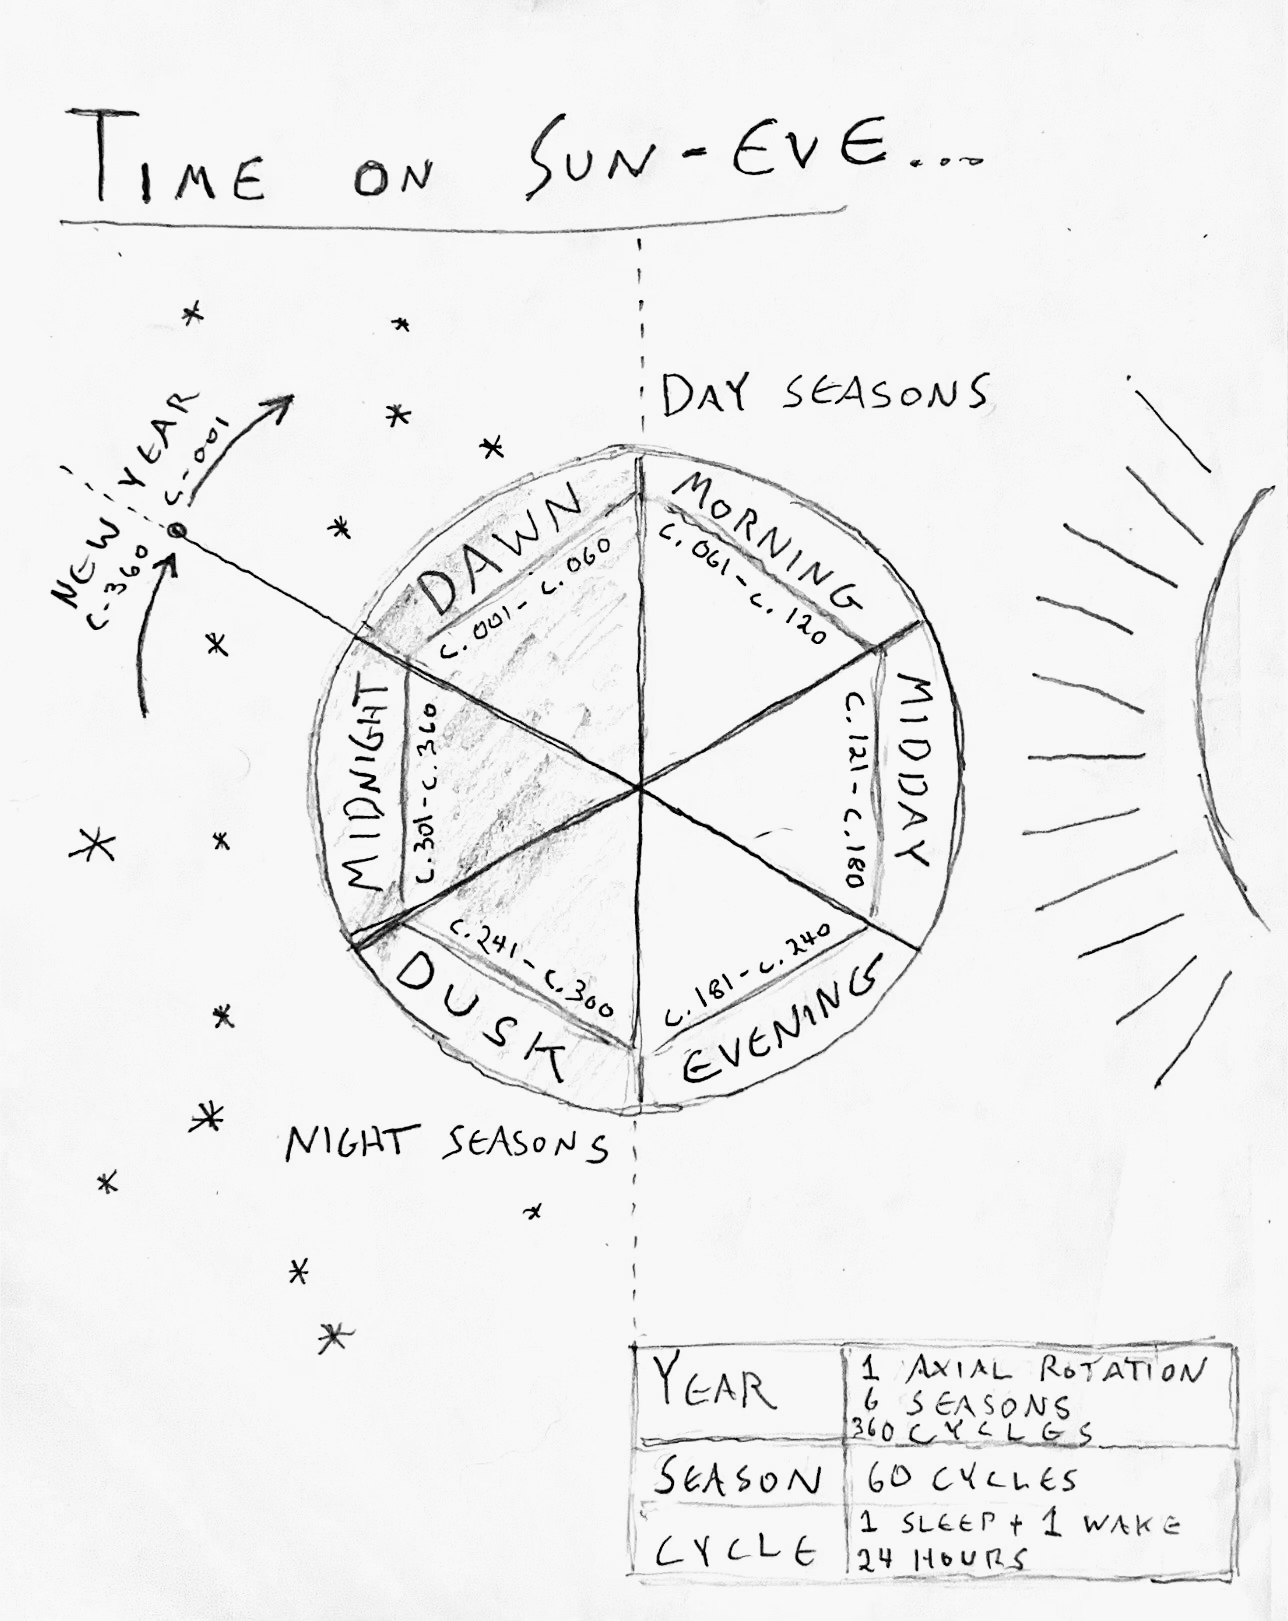 TIME ON SUN-EVE...
DAY SEASONS
NEW YEAR
C-360 C-001
DAWN
C.001-C.060
MORNING
C.061-C.120
MIDDAY
C.121-C.180
EVENING
C.181-C.240
DUSK
C.241-C.300
MIDNIGHT
C.301-C.360
NIGHT SEASONS
YEAR
1 AXIAL ROTATION
6 SEASONS
360 CYCLES
SEASON
60 CYCLES
CYCLE
1 SLEEP + 1 WAKE
24 HOURS